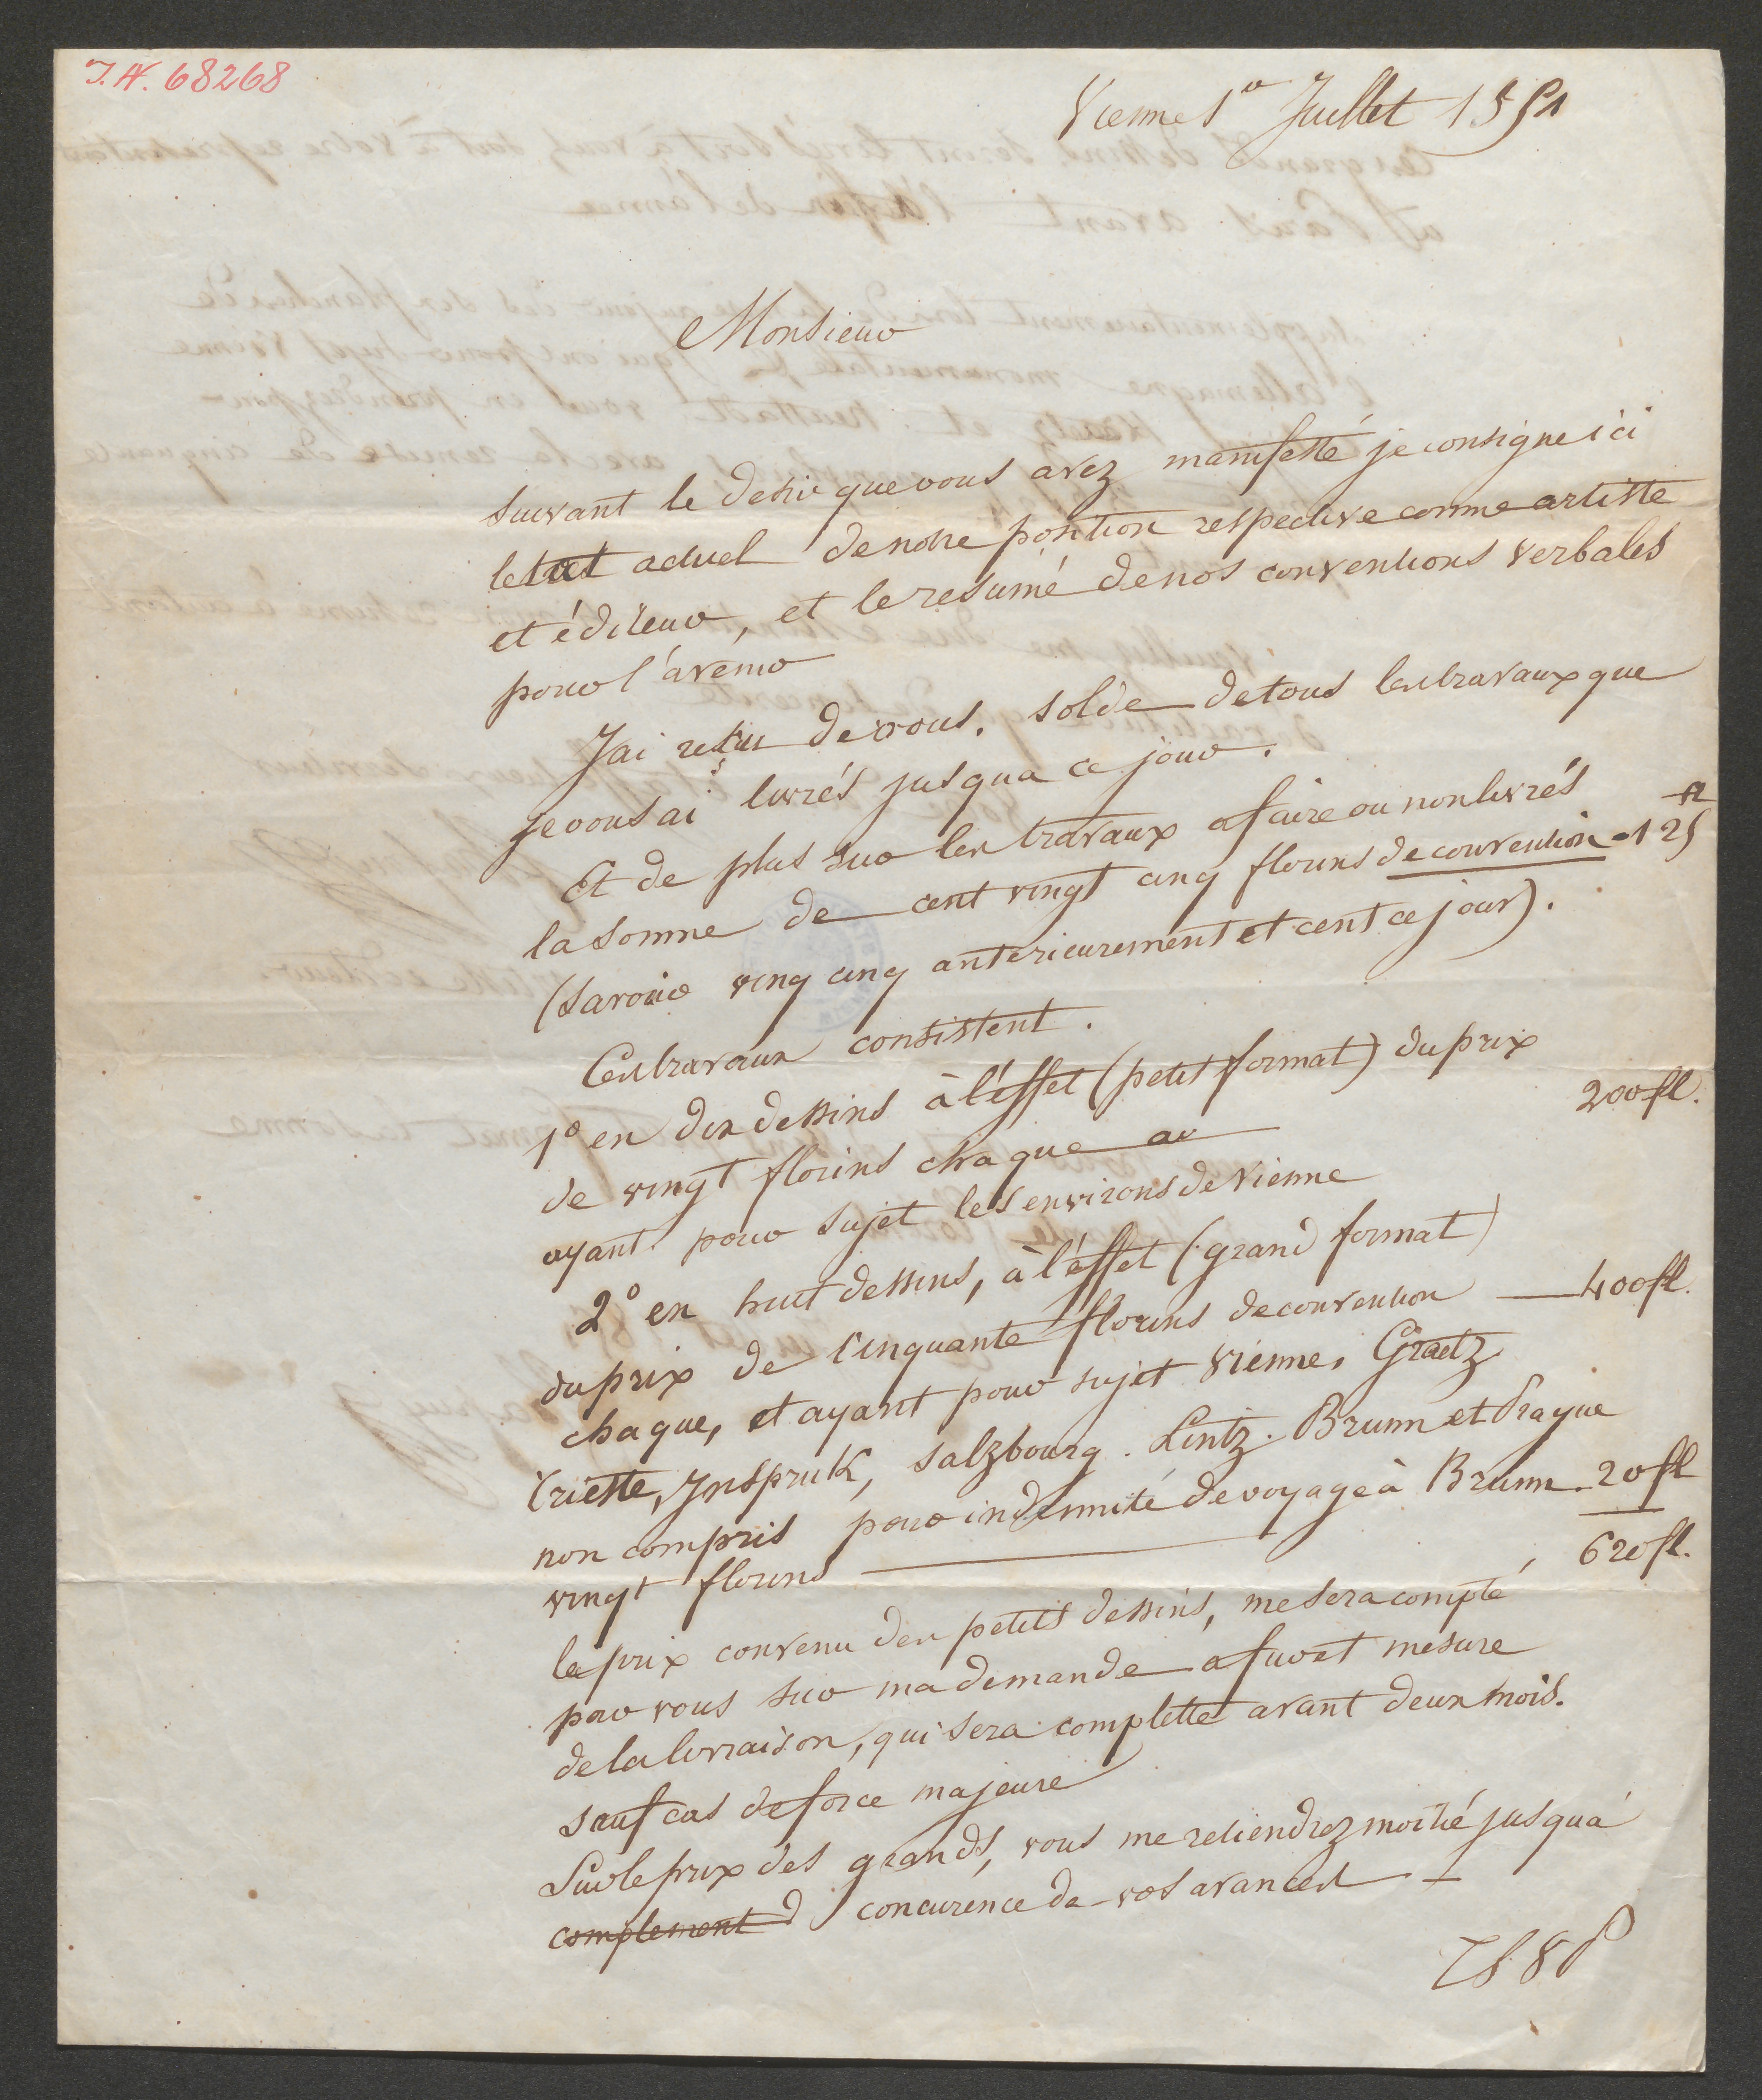 I.N. 68268
Vienne 1er Juillet 1851
Monsieur
Suivant le desir que vous avez manifesté je consigne ici
actuel de notre position respective comme artiste
et éditeur, et le resumé de nos conventions verbales
pour l'avenir
J'ai reçu de vous. solde de tous les travaux que
je vous ai livrés jusqua ce jour.
Et de plus sur les travaux a faire ou non livrés
fl
la somme de cent vingt cinq florins de convention - 125
(savoir ving cinq anterieurement et cent ce jour).
Ces travaux consistent.
1° en dix dessins à l'éffet (petit format) du prix
de vingt florins chaque 200 fl.
ayant pour sujet les environs de Vienne
2° en huit dessins, à l'éffet (grand format)
du prix de cinquante florins de convention — 400 fl.
chaque, et ayant pour sujet Vienne, Graetz
Trieste, Inspruk, Salzbourg. Lintz. Brunn et Prague
non compris pour indemnité de voyage à Brunn. 20 fl
vingt florins — 620 fl.
le prix convenu des petits dessins, me sera compté
par vous sur ma demande a fur et mesure
de la livraison, qui sera complette avant deux mois.
sauf cas de force majeure
Sur le prix des grands, vous me retiendrez moitié jusqu'à
complement d concurence de vos avances —
TSVP